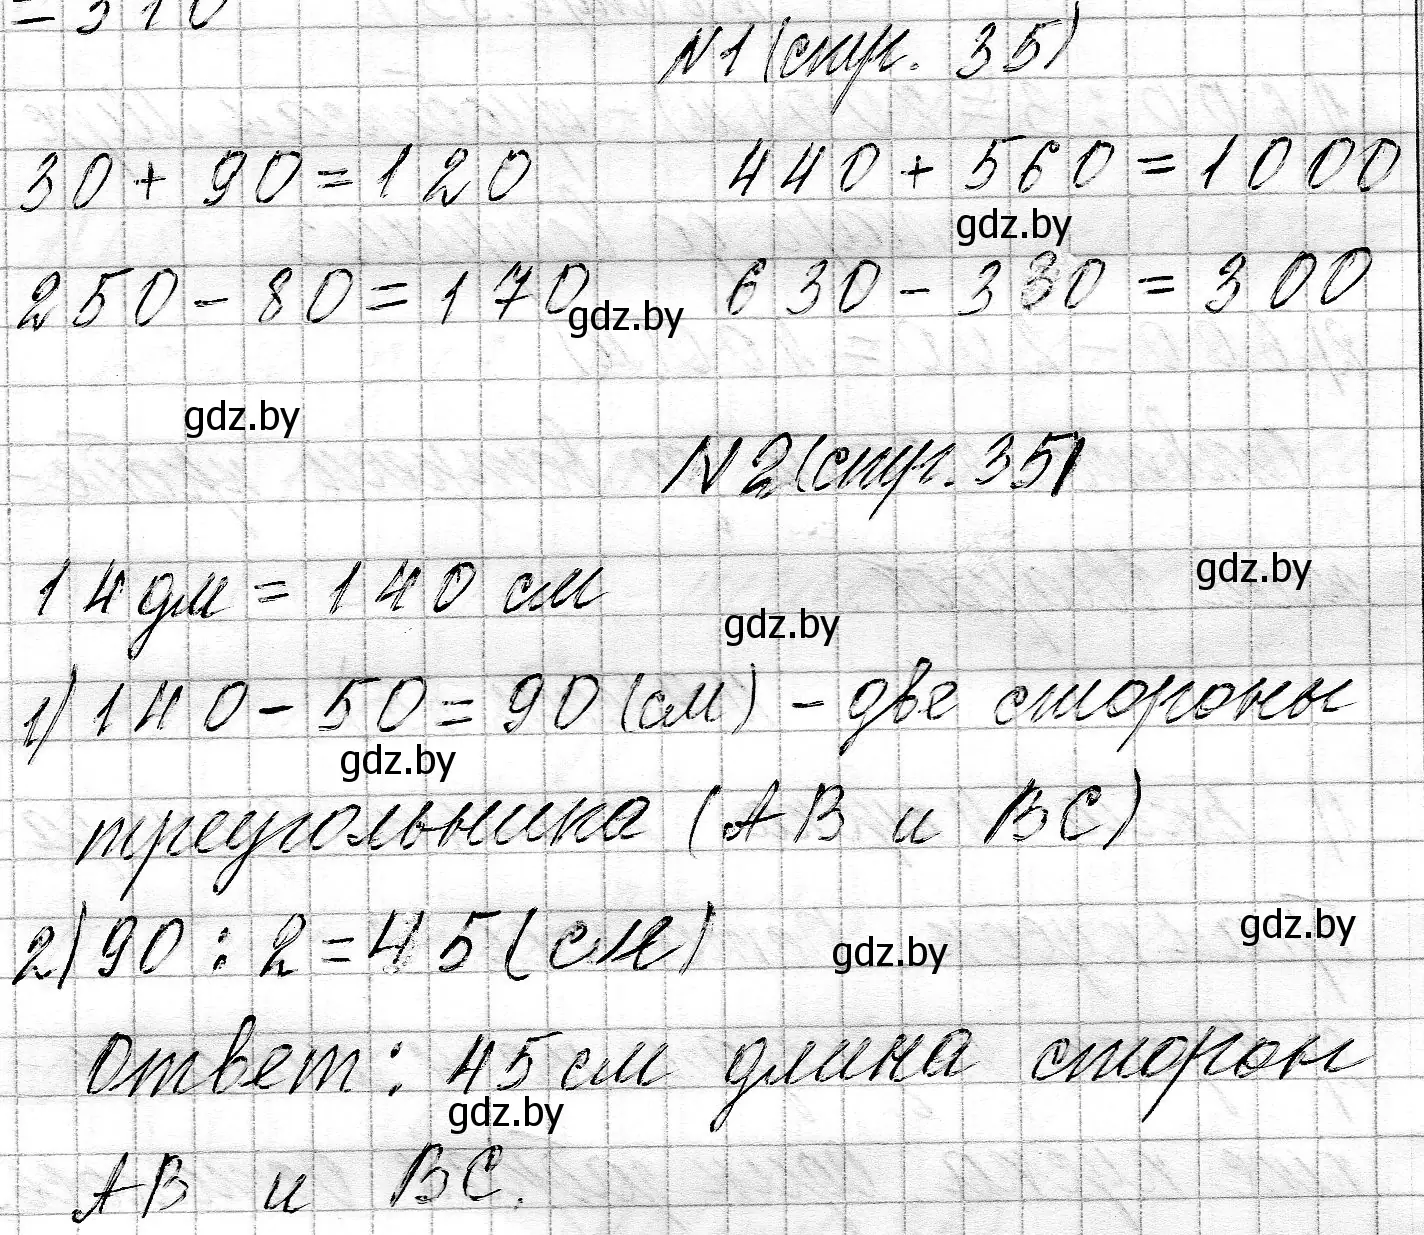 = 310
N1 (стр. 35)
30 + 90 = 120 440 + 560 = 1000
gdz.by
250 - 80 = 170 630 - 330 = 300
gdz.by
gdz.by
N2 (стр. 35)
14 дм = 140 см
gdz.by
gdz.by
1) 140 - 50 = 90 (см) - две стороны
gdz.by
треугольника (АВ и ВС)
2) 90 : 2 = 45 (см)
gdz.by
gdz.by
Ответ: 45 см длина сторон
gdz.by
АВ и ВС.